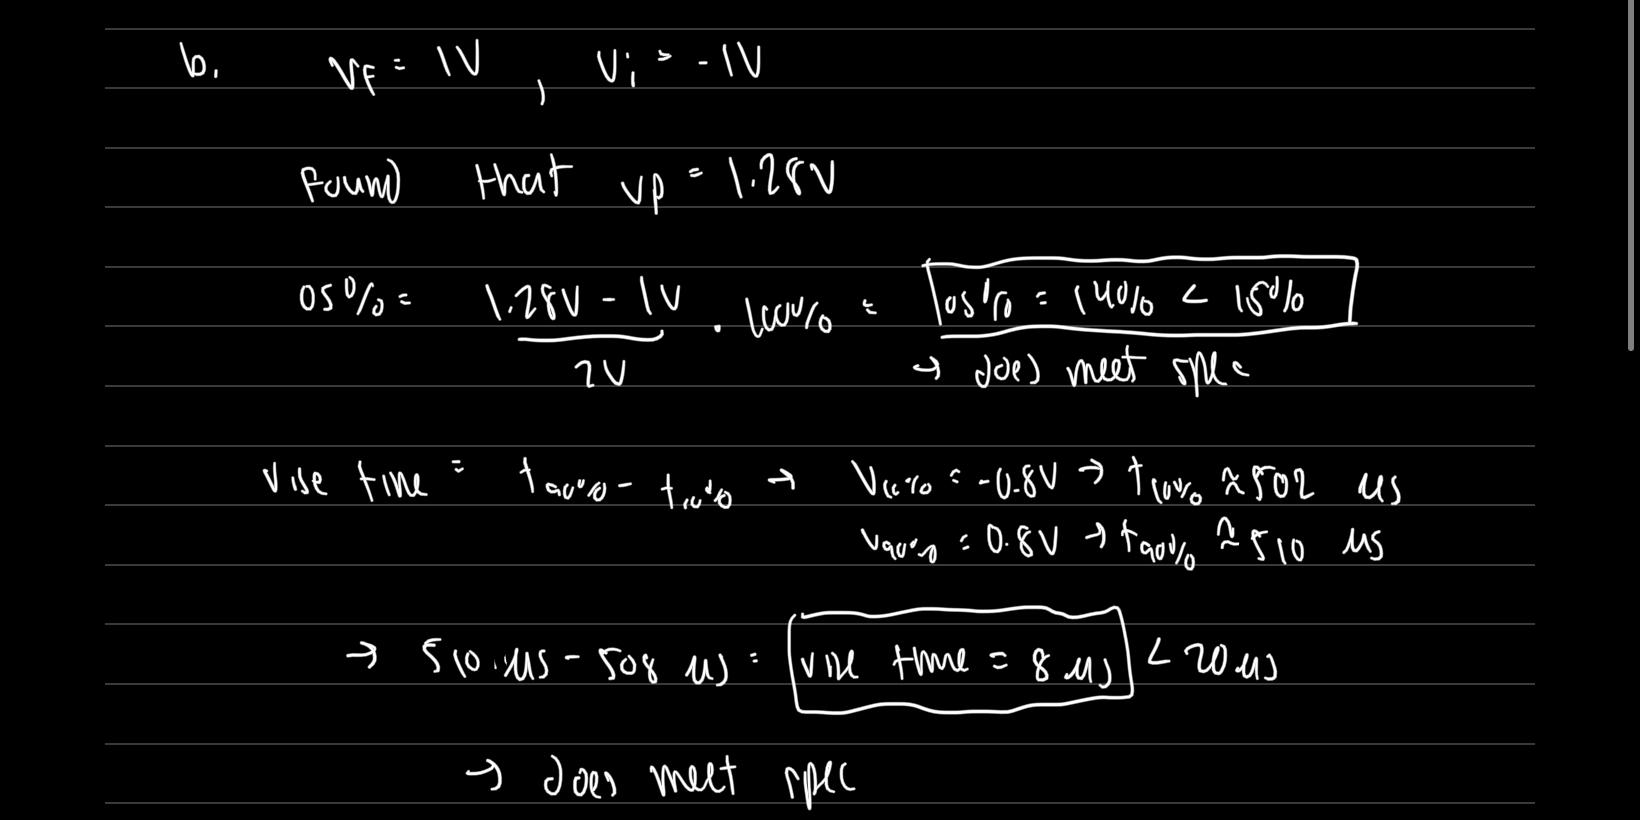 b. VF = 1V , Vi = -1V
found that vp = 1.28V
OS% = 1.28V - 1V / 2V . 100% = OS% = 14% < 15%
→ does meet spec
rise time = t90% - t10% → V10% = -0.8V → t10% ≈ 502 µs
V90% = 0.8V → t90% ≈ 510 µs
→ 510 µs - 508 µs = rise time = 8 µs < 20 µs
→ does meet spec